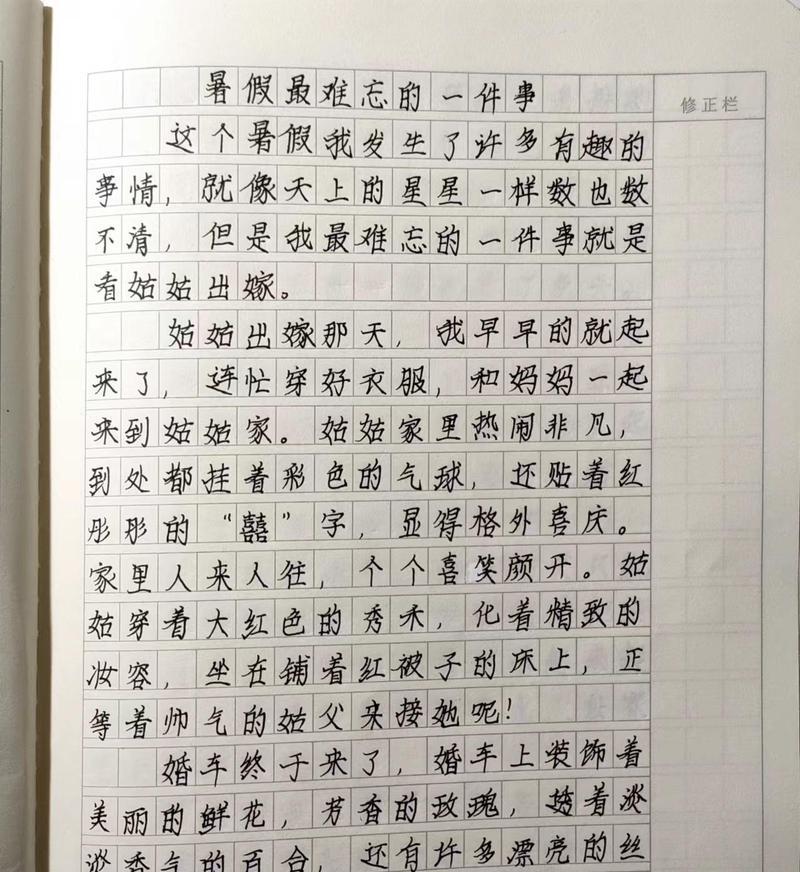 暑假最难忘的一件事
修正栏
这个暑假我发生了许多有趣的
事情，就像天上的星星一样数也数
不清，但是我最难忘的一件事就是
看姑姑出嫁。
姑姑出嫁那天，我早早的就起
来了，连忙穿好衣服，和妈妈一起
来到姑姑家。姑姑家里热闹非凡，
到处都挂着彩色的气球，还贴着红
彤彤的“囍”字，显得格外喜庆。
家里人来人往，个个喜笑颜开。姑
姑穿着大红色的秀禾，化着精致的
妆容，坐在铺着红被子的床上，正
等着帅气的姑父来接她呢！
婚车终于来了，婚车上装饰着
美丽的鲜花，芳香的玫瑰，透着淡
淡香气的百合，还有许多漂亮的丝